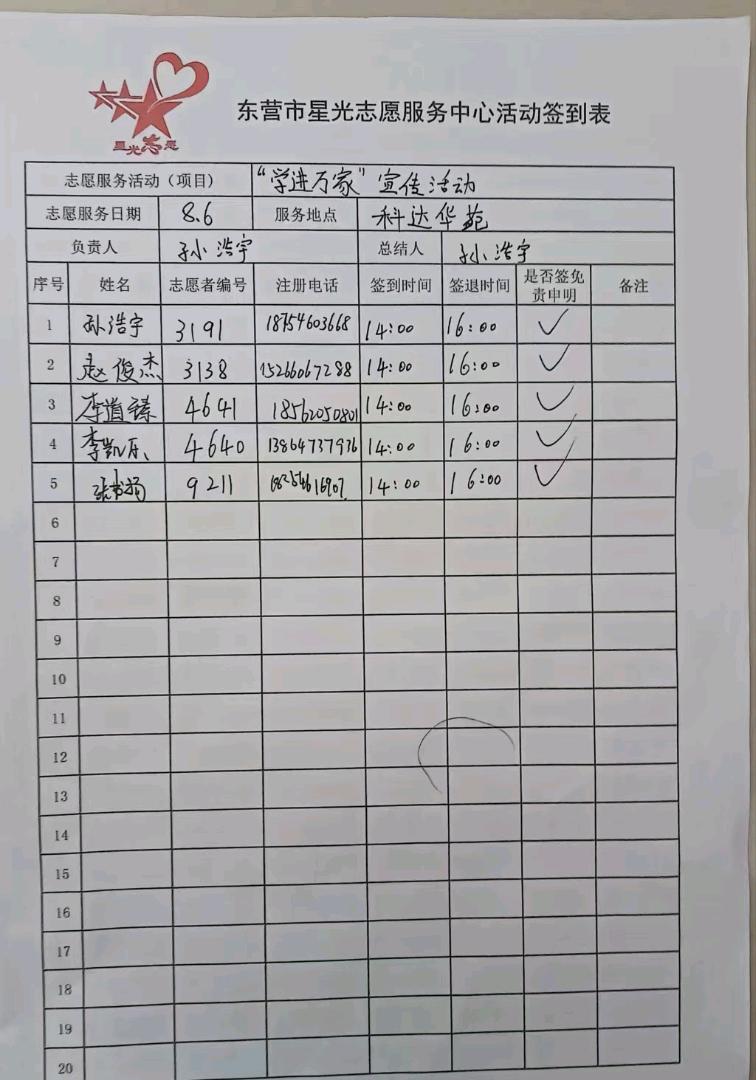 星光志愿
东营市星光志愿服务中心活动签到表
志愿服务活动（项目） “学进万家”宣传活动
志愿服务日期 8.6 服务地点 科达华苑
负责人 孙浩宇 总结人 孙浩宇
序号 姓名 志愿者编号 注册电话 签到时间 签退时间 是否签免责申明 备注
1 孙浩宇 3191 18754603668 14:00 16:00 ✓
2 赵俊杰 3138 15266067288 14:00 16:00 ✓
3 李道臻 4641 18562050801 14:00 16:00 ✓
4 李凯乐 4640 13864737976 14:00 16:00 ✓
5 9211 14:00 16:00 ✓
6
7
8
9
10
11
12
13
14
15
16
17
18
19
20